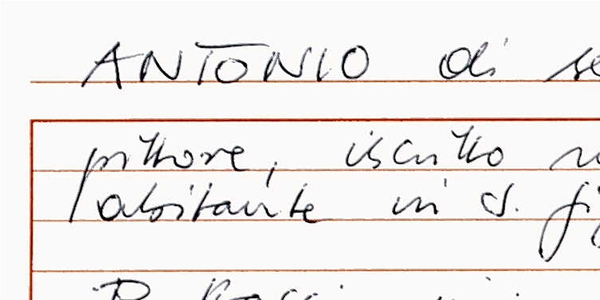 ANTONIO di se
pittore, iscritto
abitante in S.